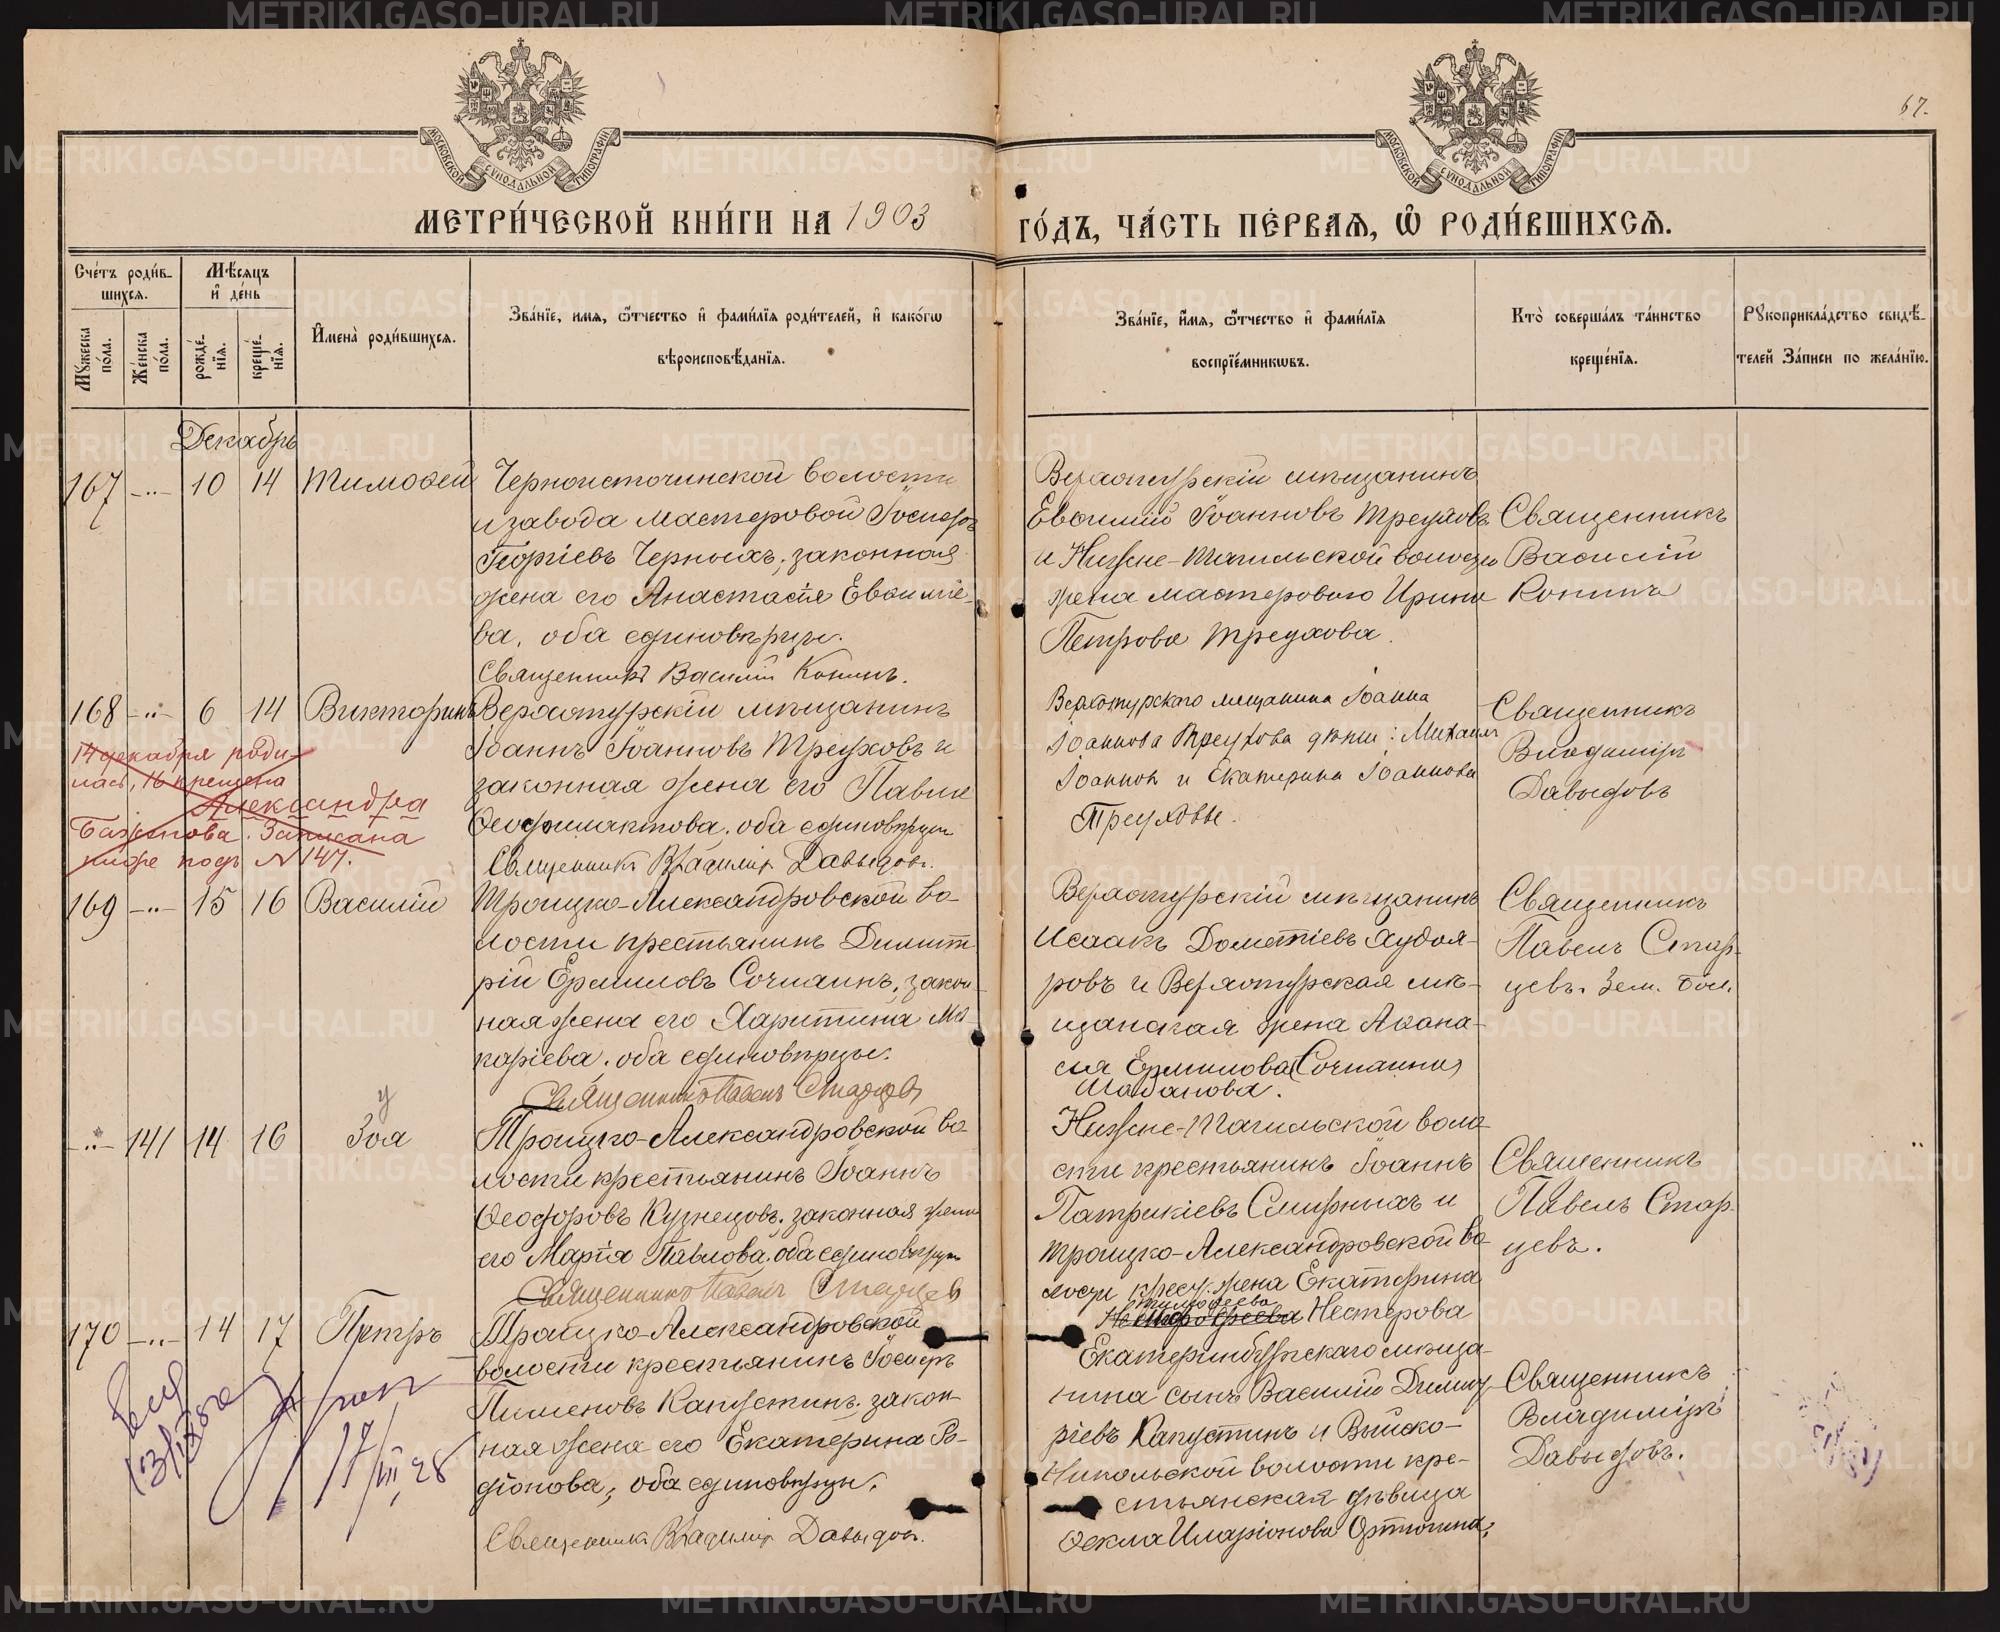 67.
МОСКОВСКОЙ СѴНОДАЛЬНОЙ ТИПОГРАФІИ
МОСКОВСКОЙ СѴНОДАЛЬНОЙ ТИПОГРАФІИ
МЕТРИ́ЧЕСКОЙ КНИ́ГИ НА 1903 ГО́ДЪ, ЧА́СТЬ ПЕ́РВАЯ, Ѿ РОДИ́ВШИХСЯ.
Сче́тъ роди́в-
шихся.
Мѣ́сяцъ
и де́нь
Мꙋжеска по́ла.
Же́нска по́ла.
рожде́-
нїя.
креще́-
нїя.
И́мена̀ роди́вшихся.
Зва́нїе, имя, ѻ҆́тчество и҆ фами́лїя роди́телей, и҆ како́гѡ
вѣроисповѣ́данїя.
Зва́нїе, и҆́мя, ѻ҆́тчество и҆ фами́лїя
воспрїе́мникѡвъ.
Кто̀ соверша́лъ та́инство
креще́нїя.
Рꙋкоприкла́дство свидѣ́-
телей За́писи по жела́нїю.
Декабрь
167 -"- 10 14 Тимоѳей
Черноисточинской волости
и завода мастеровой Іосифъ
Георгіевъ Черныхъ, законная
жена его Анастасія Евѳиміе-
ва, оба единовѣрцы.
Священникъ Василій Конинъ.
Верхотурскій мѣщанинъ
Евѳимій Іоанновъ Треуховъ
и Нижне-Тагильской волости
жена мастерового Ирина
Петрова Треухова.
Священникъ
Василій
Конинъ
168 -"- 6 14 Викторинъ
Верхотурскій мѣщанинъ
Іоаннъ Іоанновъ Треуховъ и
законная жена его Павла
Ѳеофилактова, оба единовѣрцы
Священникъ Владиміръ Давыдовъ.
Верхотурскаго мещанина Іоанна
Іоаннова Треухова дѣти: Михаилъ
Іоанновъ и Екатерина Іоаннова
Треуховы.
Священникъ
Владиміръ
Давыдовъ
14 декабря роди-
лась, 16 крещена
Александра
Записана
ниже подъ № 147.
169 -"- 15 16 Василій
Троицко-Александровской во-
лости крестьянинъ Димит-
рій Ермиловъ Сочнинъ, закон-
ная жена его Харитина Ма-
каріева, оба единовѣрцы.
Священникъ Павелъ Старцев
Верхотурскій мѣщанинъ
Исаакъ Дометіевъ Худоя-
ровъ и Верхотурская мѣ-
щанская жена Аѳана-
сія Ермилова
Шабанова.
Священникъ
Павелъ Стар-
цевъ.
у
-"- 141 14 16 Зоя
Троицко-Александровской во
лости крестьянинъ Іоаннъ
Ѳеодоровъ Кузнецовъ, законная жена
его Марія Павлова, оба единовѣрцы
Священникъ Павелъ Старцев
Нижне-Тагильской воло-
сти крестьянинъ Іоаннъ
Патрикіевъ Смирныхъ и
Троицко-Александровской во-
лости крест. жена Екатерина
Тимофеева
Нестерова
Священникъ
Павелъ Стар-
цевъ.
170 -"- 14 17 Петръ
Троицко-Александровской
волости крестьянинъ Іосифъ
Пименовъ Капустинъ, закон-
ная жена его Екатерина Ро-
діонова, оба единовѣрцы.
Священникъ Владиміръ Давыдовъ.
Екатеринбургскаго мѣща-
нина сынъ Василій Димит-
ріевъ Капустинъ и Выйско-
Никольской волости кре-
стьянская дѣвица
Ѳекла Иларіонова Ортюгина.
Священникъ
Владиміръ
Давыдовъ.
17/III, 28
METRIKI.GASO-URAL.RU